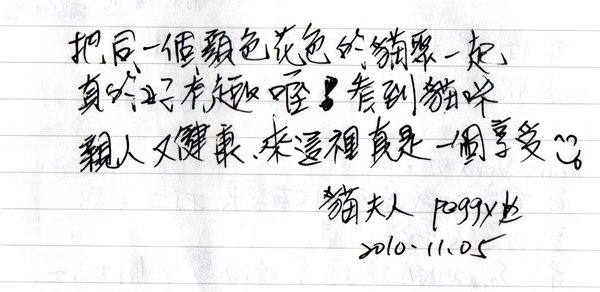 把同一個顏色花色的貓聚一起,
真的好有趣喔! 看到貓咪
親人又健康、來這裡真是一個享受
貓夫人 peggy
2010.11.05